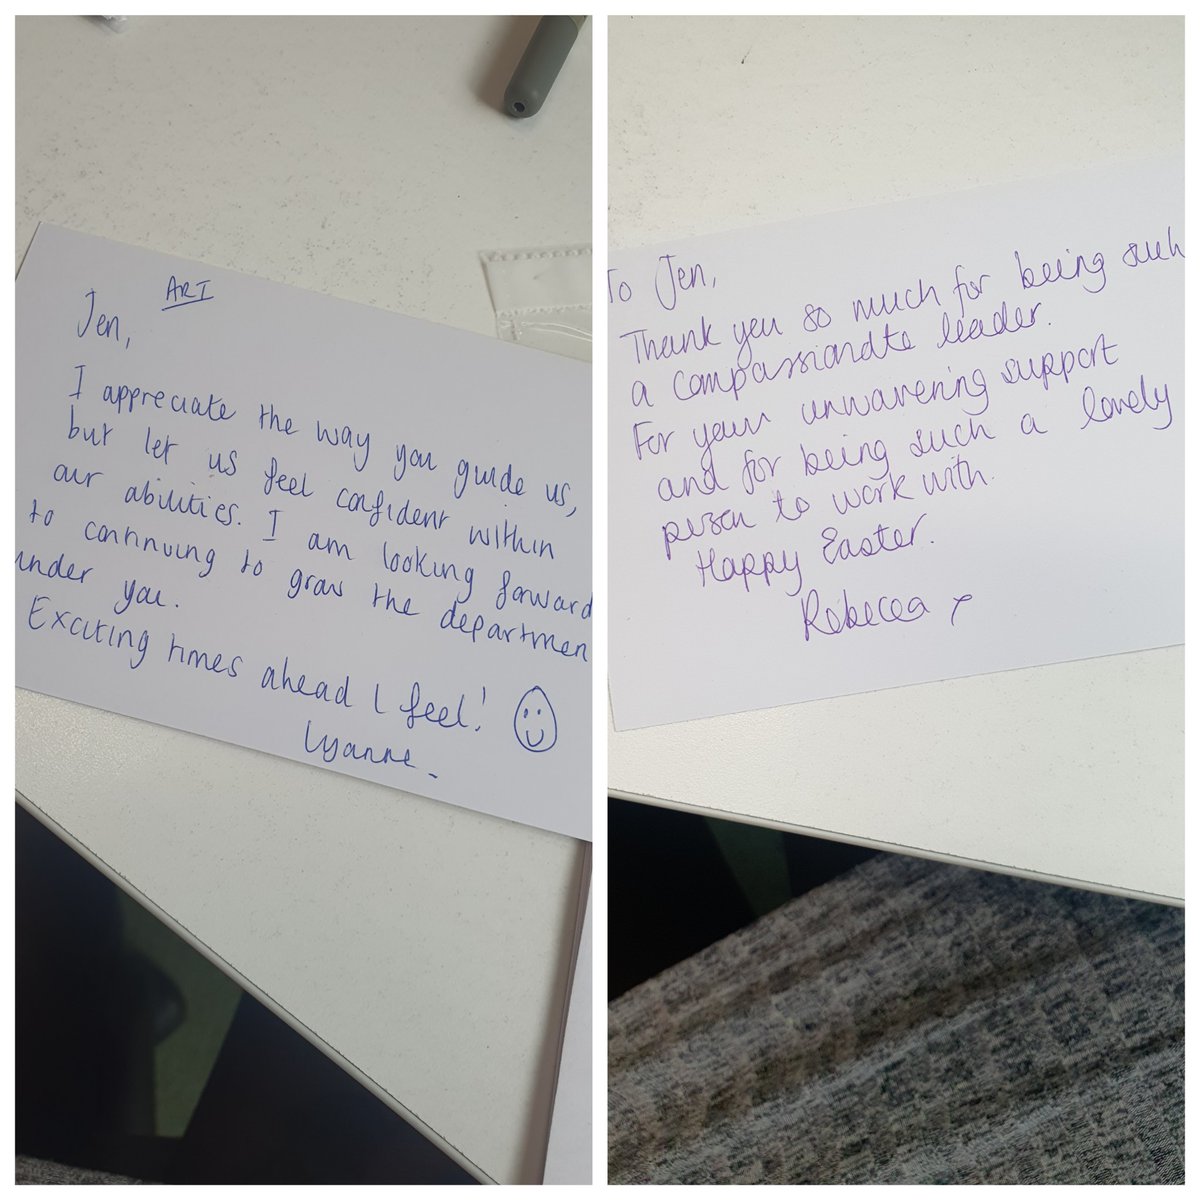 ART
Jen,
I appreciate the way you guide us,
but let us feel confident within
our abilities. I am looking forward
to continuing to grow the departmen
under you.
Exciting times ahead I feel!
Lyanne.
To Jen,
Thank you so much for being such
a compassionate leader.
For your unwavering support
and for being such a lovely
person to work with.
Happy Easter.
Rebecca x